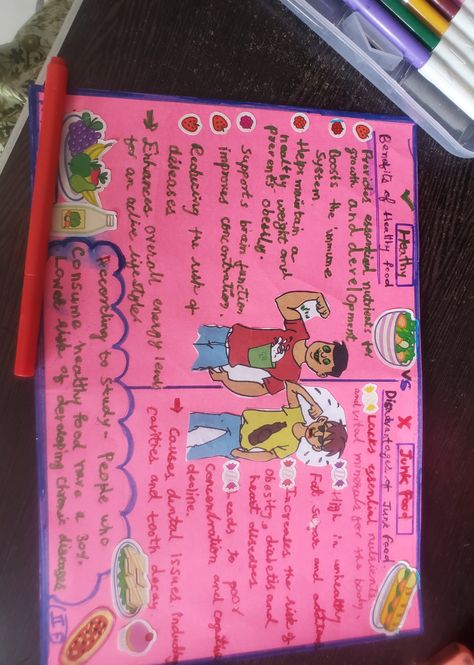 Healthy
VS
Junk Food
Benefits of Healthy food
Provides essential nutrients for
growth and development
Boosts the immune
System.
Helps maintain a
healthy weight and
prevents obesity.
Supports brain function
improves concentration.
Reducing the risk of
diseases
Enhances overall energy levels
for an active lifestyles
Disadvantages of Junk food
Lacks essential nutrients
and vital minerals for the body.
High in unhealthy
Fat, Sugar and
Increases the risk of
Obesity, diabetes and
heart diseases
Leads to poor
concentration and cognitive
decline.
Causes dental issues, including
cavities and tooth decay
According to study- People who
Consume healthy food have a 30%
Lower risk of developing chronic diseases